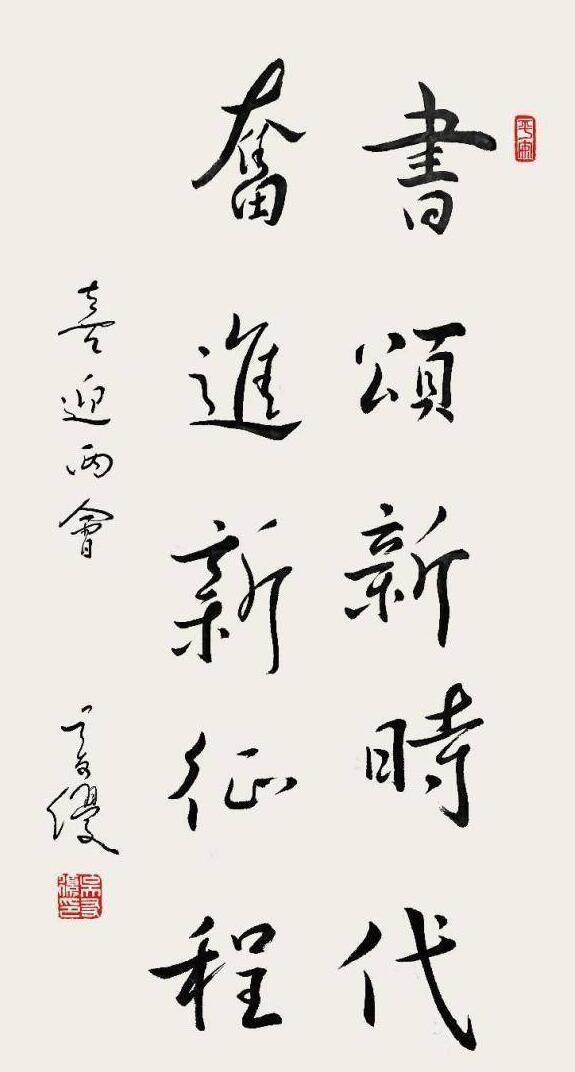 書頌新時代
奮進新征程
喜迎兩會